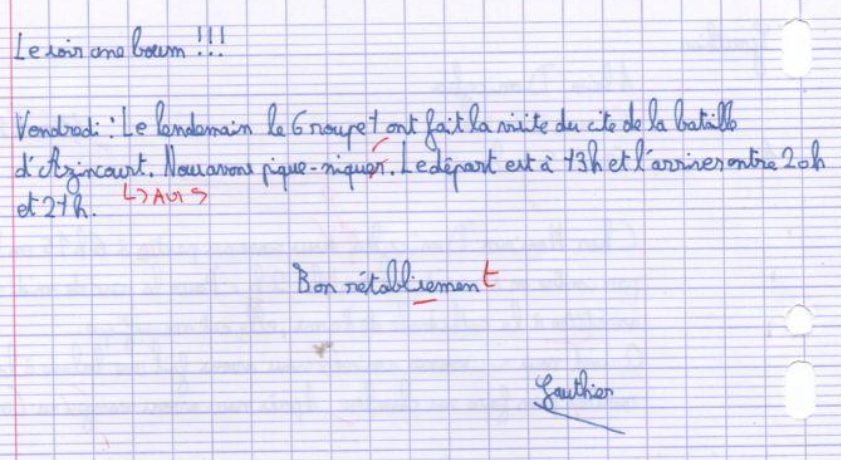 Le soir une boum !!!
Vendredi : Le lendemain le Groupe 1 ont fait la visite du cite de la bataille
d'Azincourt. Nous avons pique-niquer. Le départ est à 13h et l'arriver entre 20h
↳ Avis
et 21h.
Bon rétablisement
Gauthier